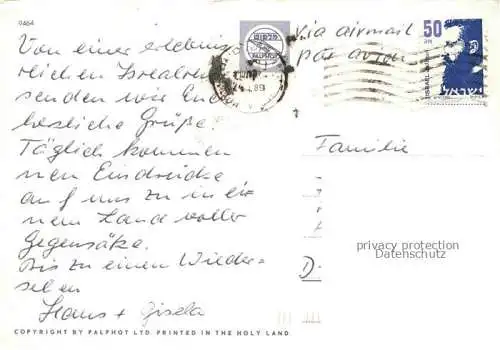 0464
Von einer erlebnis
reichen Israelreise
senden wir Euch
herzliche Grüße.
Täglich kommen
neue Eindrücke
auf uns zu in ei-
nem Land voller
Gegensätze.
Bis zu einem Wieder-
sehen
Hans + Gisela
COPYRIGHT BY PALPHOT LTD. PRINTED IN THE HOLY LAND
פלפוט
PALPHOT
Via airmail
par avion
50
ISRAEL
ישראל
Familie
privacy protection
Datenschutz
D-